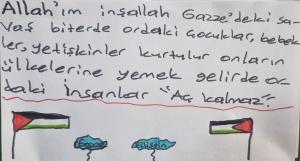 Allah'ım inşallah Gazze'deki sa-
vaş biterde ordaki çocuklar, bebek-
ler, yetişkinler kurtulur onların
ülkelerine yemek gelirde or-
daki insanlar "Aç kalmaz".